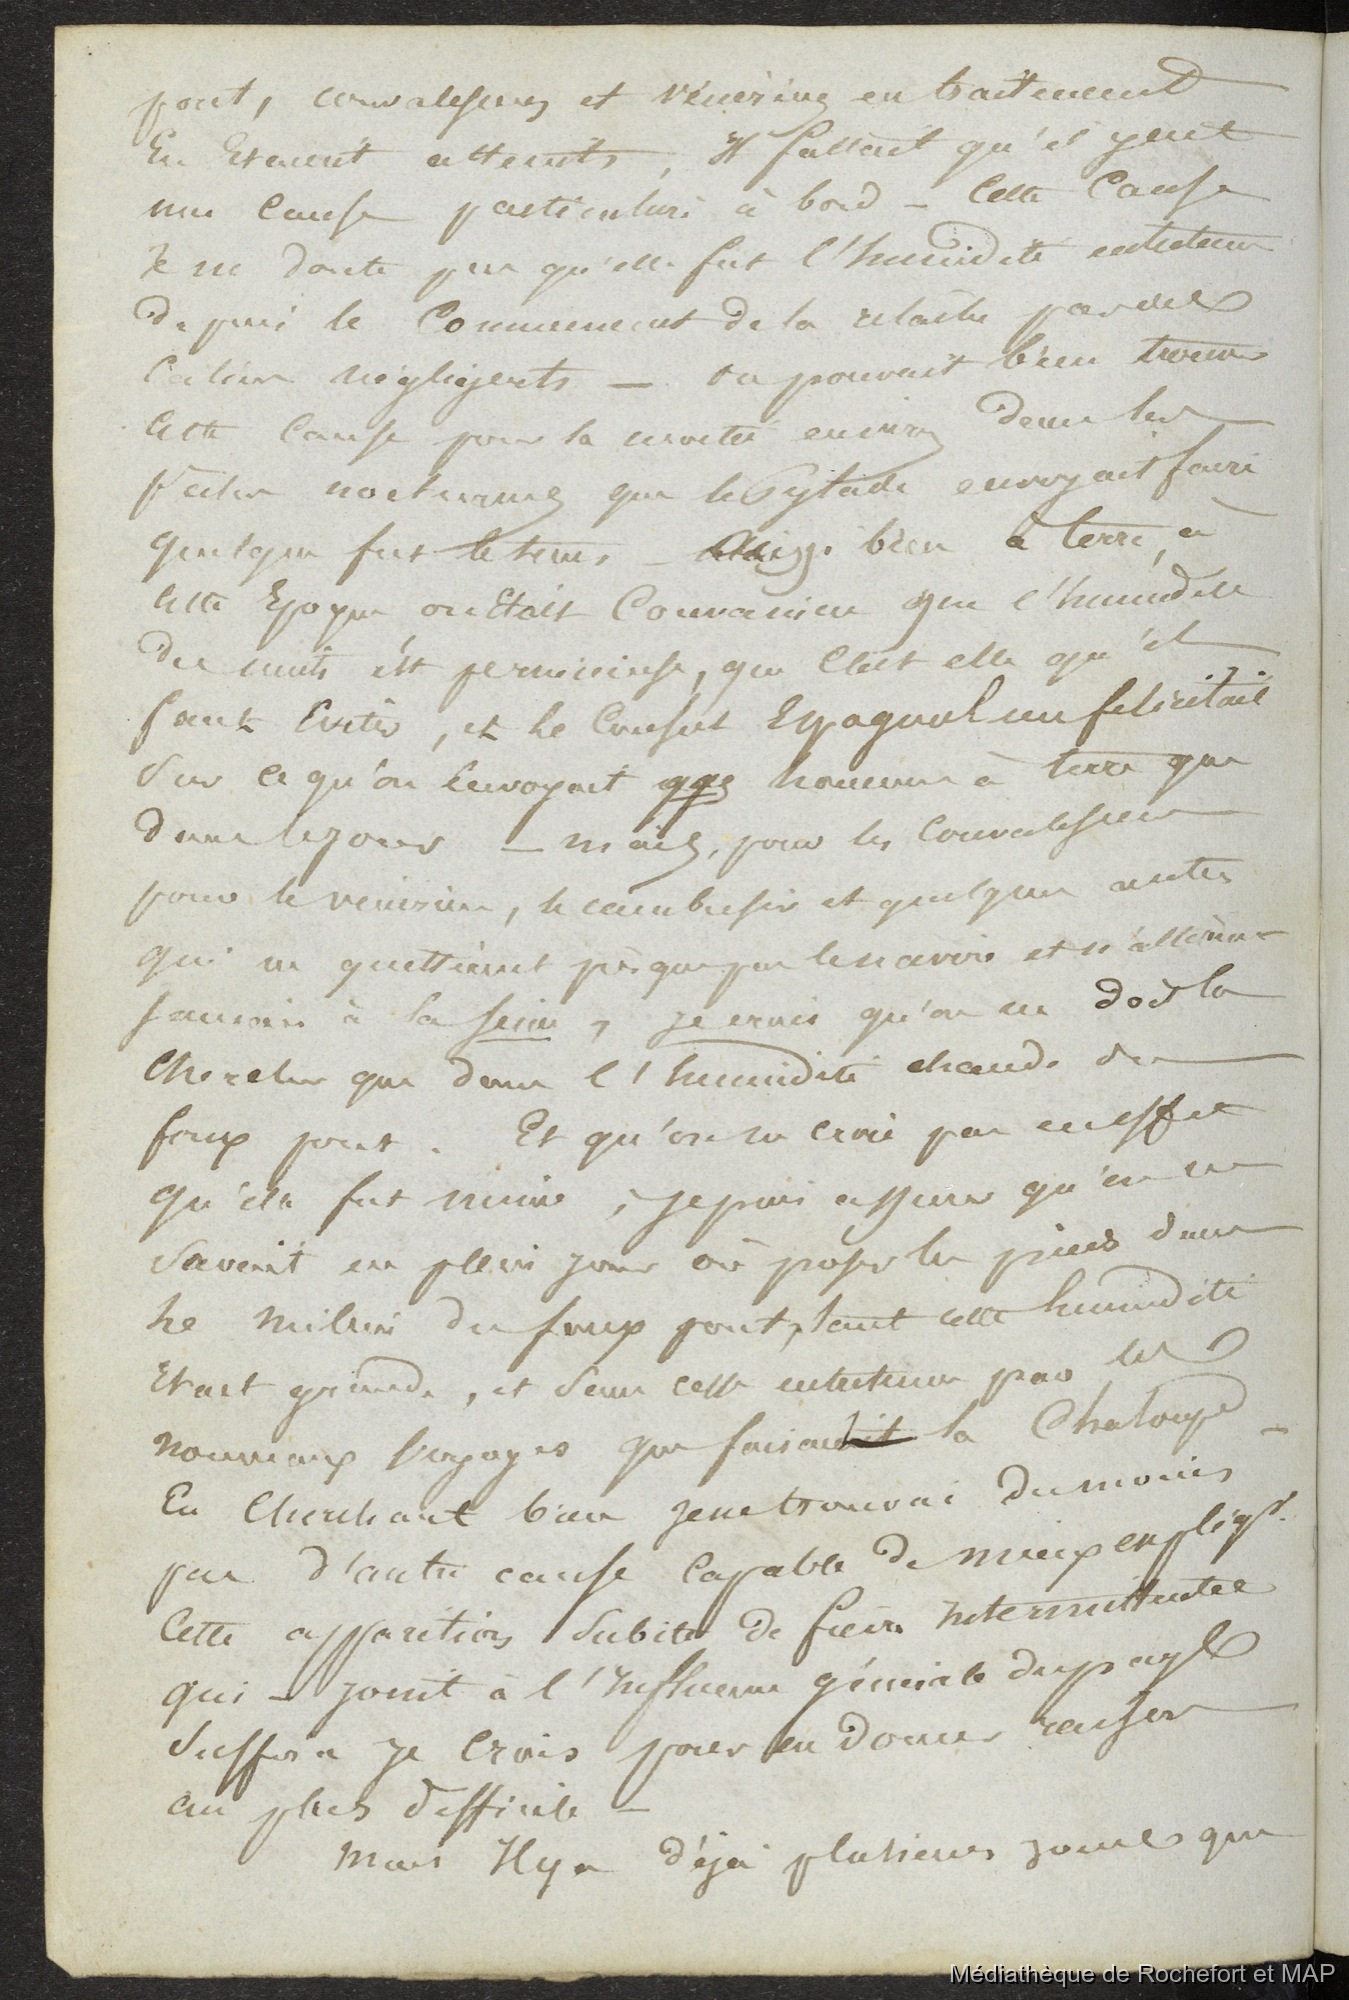 pont, convalescens et vénériens en traitement
En Etaient atteints, Il fallait qu'il y eut
une Cause particulière à bord – Cette Cause
Je ne doute pas qu'elle fut l'humidité entretenue
Depuis le Commencement de la relâche par des
Caliers négligents — On pouvait bien trouver
Cette Cause pour la moitié environ Dans les
nocturnes que le Pylade envoyait faire
quelque fut le tems – Aussi bien à terre, à
Cette Epoque on Etait Convaincu que l'humidité
Des nuits est pernicieuse, que C'est elle qu'il
faut Eviter, et le Consul Espagnol me félicitait
Sur ce qu'on n'envoyait qqs hommes à terre que
Dans le jour – mais, pour les Convalescens
pour le vénérien, le cambusier et quelques autres
qui ne quittaient presque pas le navire et n'allaient
Jamais à la seine, je crois qu'on ne doit la
Chercher que dans l'humidité chaude du
faux pont. Et qu'on ne croie pas en effet
qu'elle fut minime, je puis assurer qu'on ne
Savait en plein jour où poser les pieds dans
le milieu du faux pont, tant cette humidité
Etait grande, et Sans cesse entretenue par les
nouveaux voyages que faisait la Chaloupe –
En Cherchant bien je ne trouvai du moins
pas d'autre cause Capable De mieux expliqr.
Cette apparition Subite de fièvre Intermittente
qui – joint à l'Influence générale du pays
Suffira je Crois pour en Donner raison
au plus difficile –
Mais Il y a déjà plusieurs jours que
Médiathèque de Rochefort et MAP